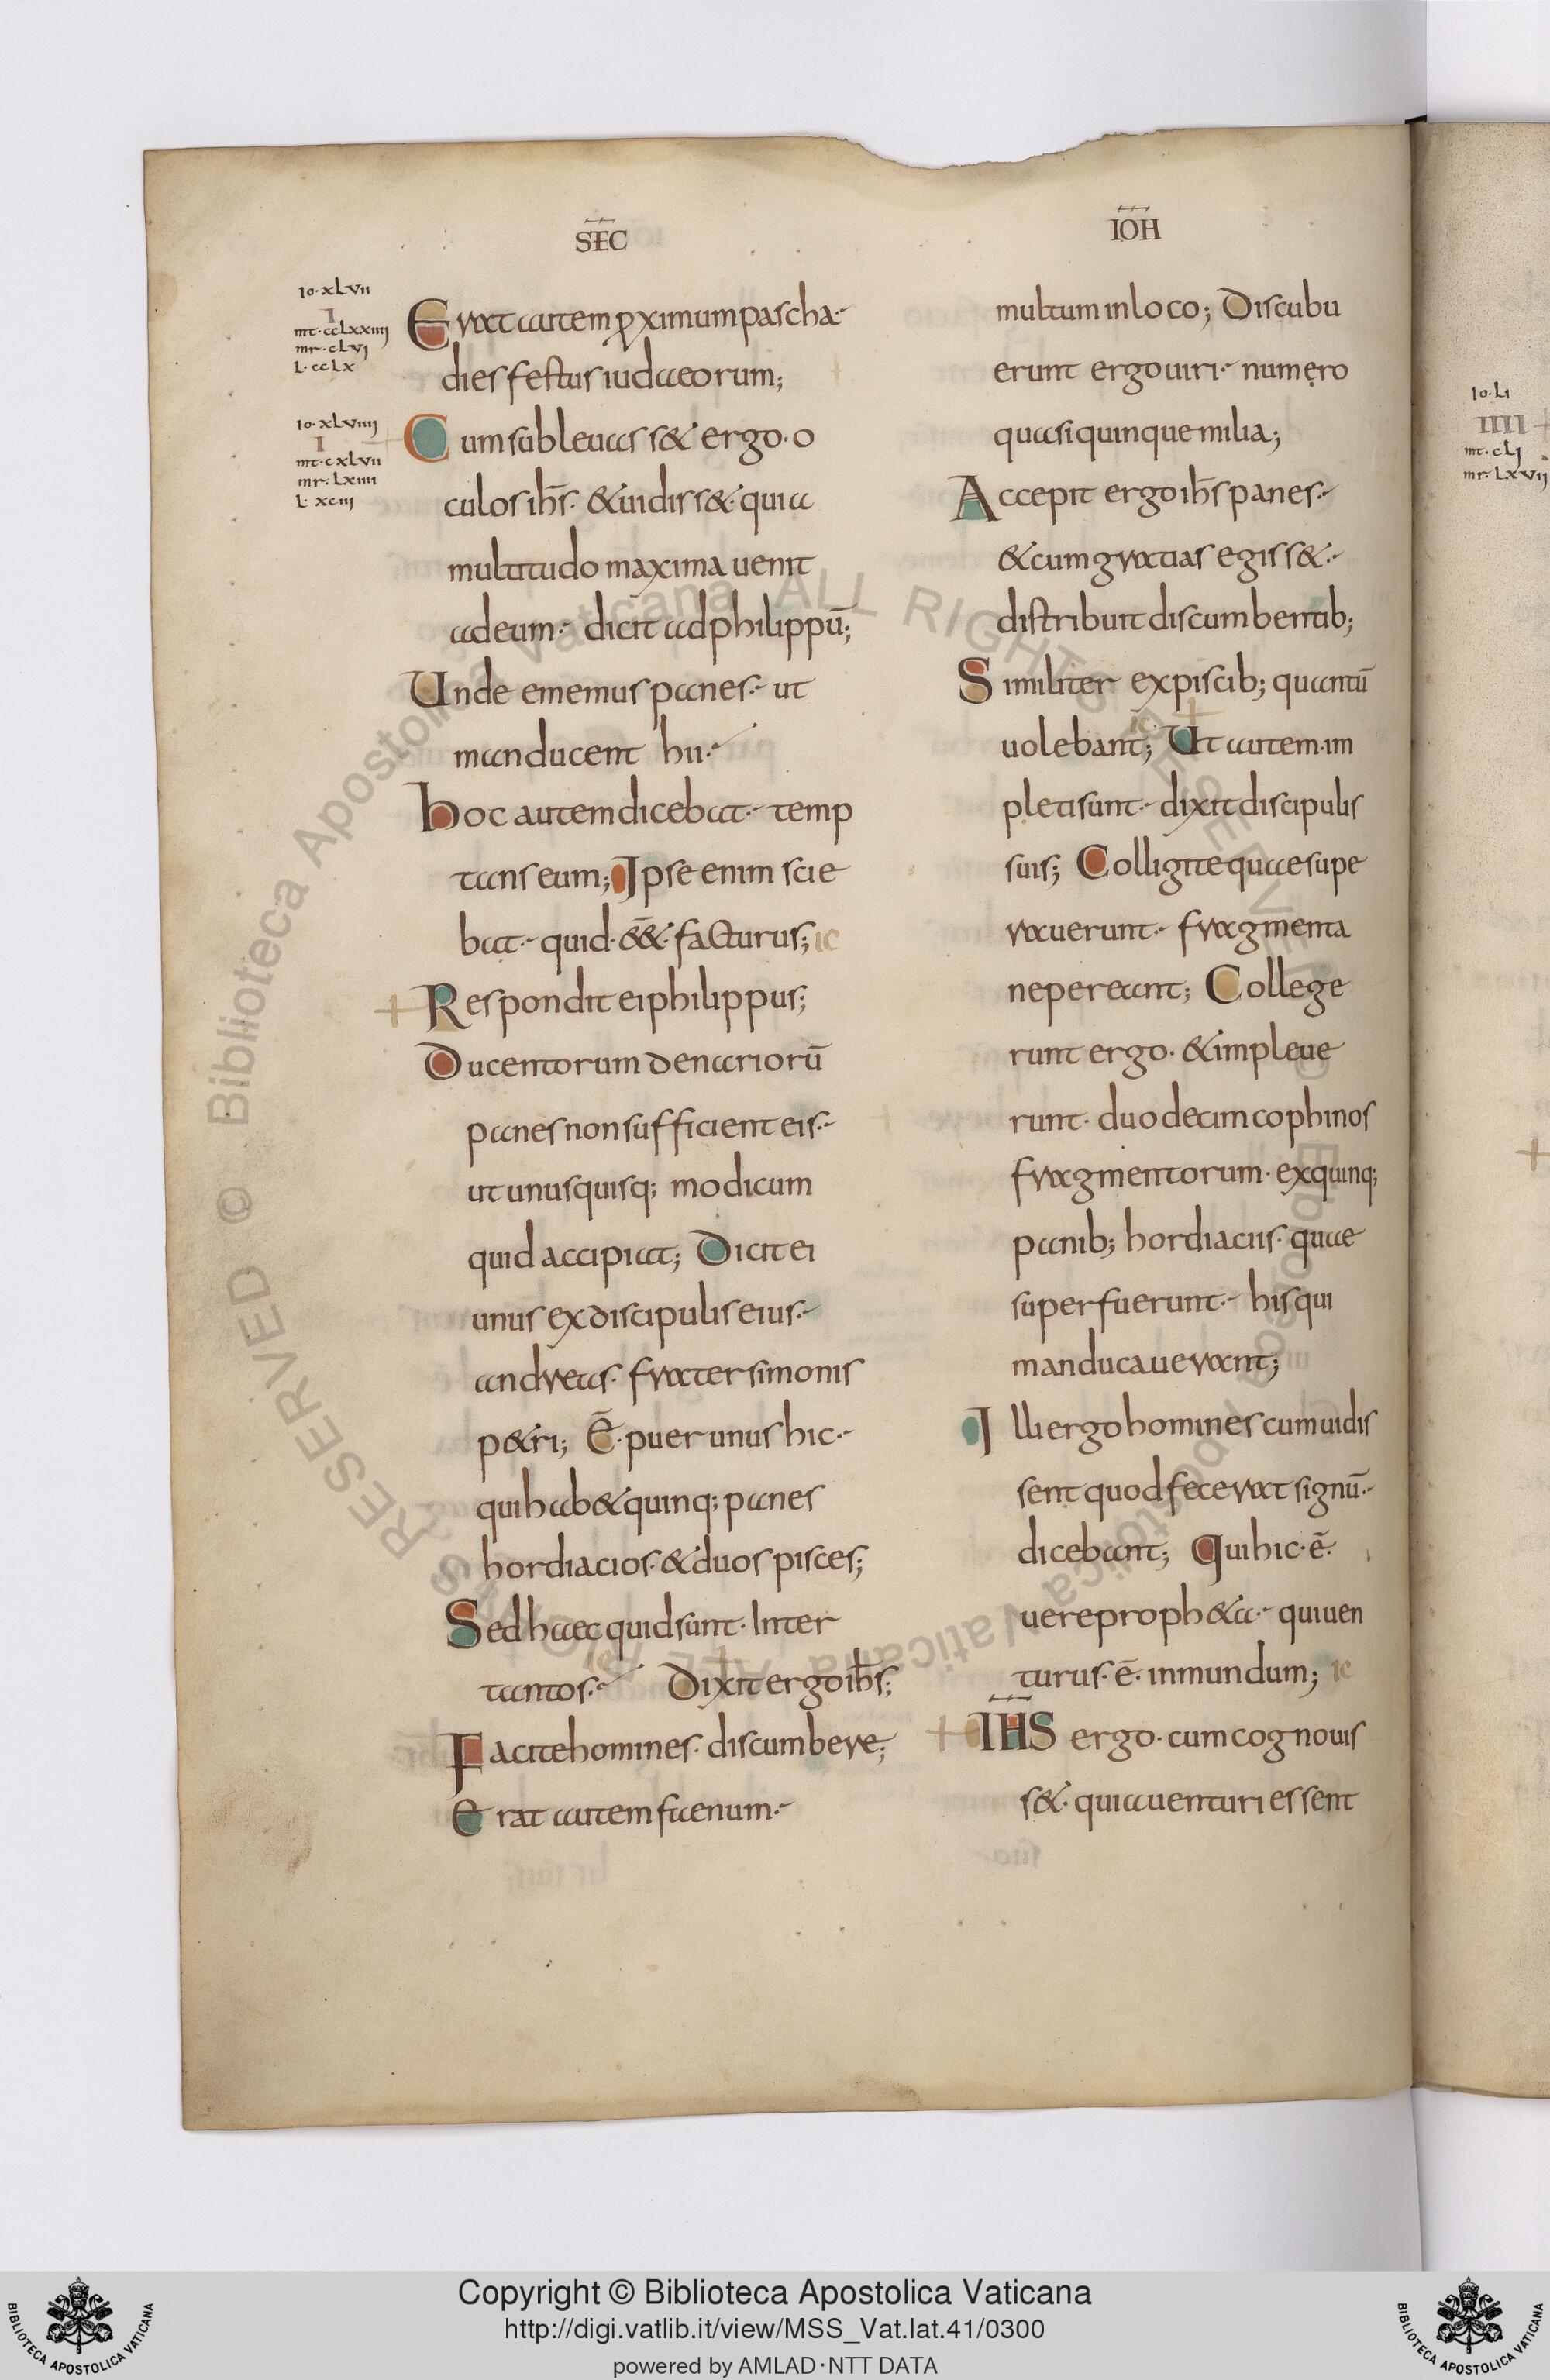 SEC
IOH
Io·xlvii
I
mt·cclxxiiii
mr·clvi
l·cclx
Io·xlviiii
I
mt·cxlvii
mr·lxiiii
l·xciii
Erat autem ꝓximum pascha·
dies festus iudaeorum;
Cum subleuass& ergo· o
culos ih̅s· & uidiss&· quia
multitudo maxima uenit
ad eum· dicit ad philippu̅;
Unde ememus panes· ut
manducent hii·
Hoc autem dicebat· temp
tans eum; Ipse enim scie
bat· quid· e̅e̅&· facturus; ic
Respondit ei philippus;
Ducentorum denarioru̅
panes non sufficient eis·
ut unusquisq; modicum
quid accipiat; Dicit ei
unus ex discipulis eius·
andreas· frater simonis
p&ri; E̅· puer unus hic·
qui hab& quinq; panes
hordiacios· & duos pisces;
Sed haec quid sunt· Inter
tantos· Dixit ergo ih̅s;
Facite homines· discumbere;
Erat autem faenum·
multum in loco; Discubu
erunt ergo uiri· numero
quasi quinque milia;
Accepit ergo ih̅s panes·
& cum gratias egiss&·
distribuit discumbentib;
Similiter ex piscib; quantu̅
ic
uolebant; Ut autem im
pleti sunt· dixit discipulis
suis; Colligite quae supe
rauerunt· fragmenta
ne pereant; College
runt ergo· & impleue
runt· duodecim cophinos
fragmentorum· ex quinq;
panib; hordiaciis· quae
superfuerunt· his qui
manducauerant;
Illi ergo homines cum uidis
sent quod fecerat signu̅·
dicebant; Qui hic· e̅·
uere proph&a· qui uen
turus· e̅· in mundum; ic
IHS ergo· cum cognouis
s&· quia uenturi essent
Io·li
IIII
mt·clj
mr·lxvij
© Biblioteca Apostolica Vaticana ALL RIGHTS RESERVED © Biblioteca Apostolica Vaticana ALL RIGHTS RESERVED
Copyright © Biblioteca Apostolica Vaticana
http://digi.vatlib.it/view/MSS_Vat.lat.41/0300
powered by AMLAD·NTT DATA
BIBLIOTECA APOSTOLICA VATICANA
BIBLIOTECA APOSTOLICA VATICANA